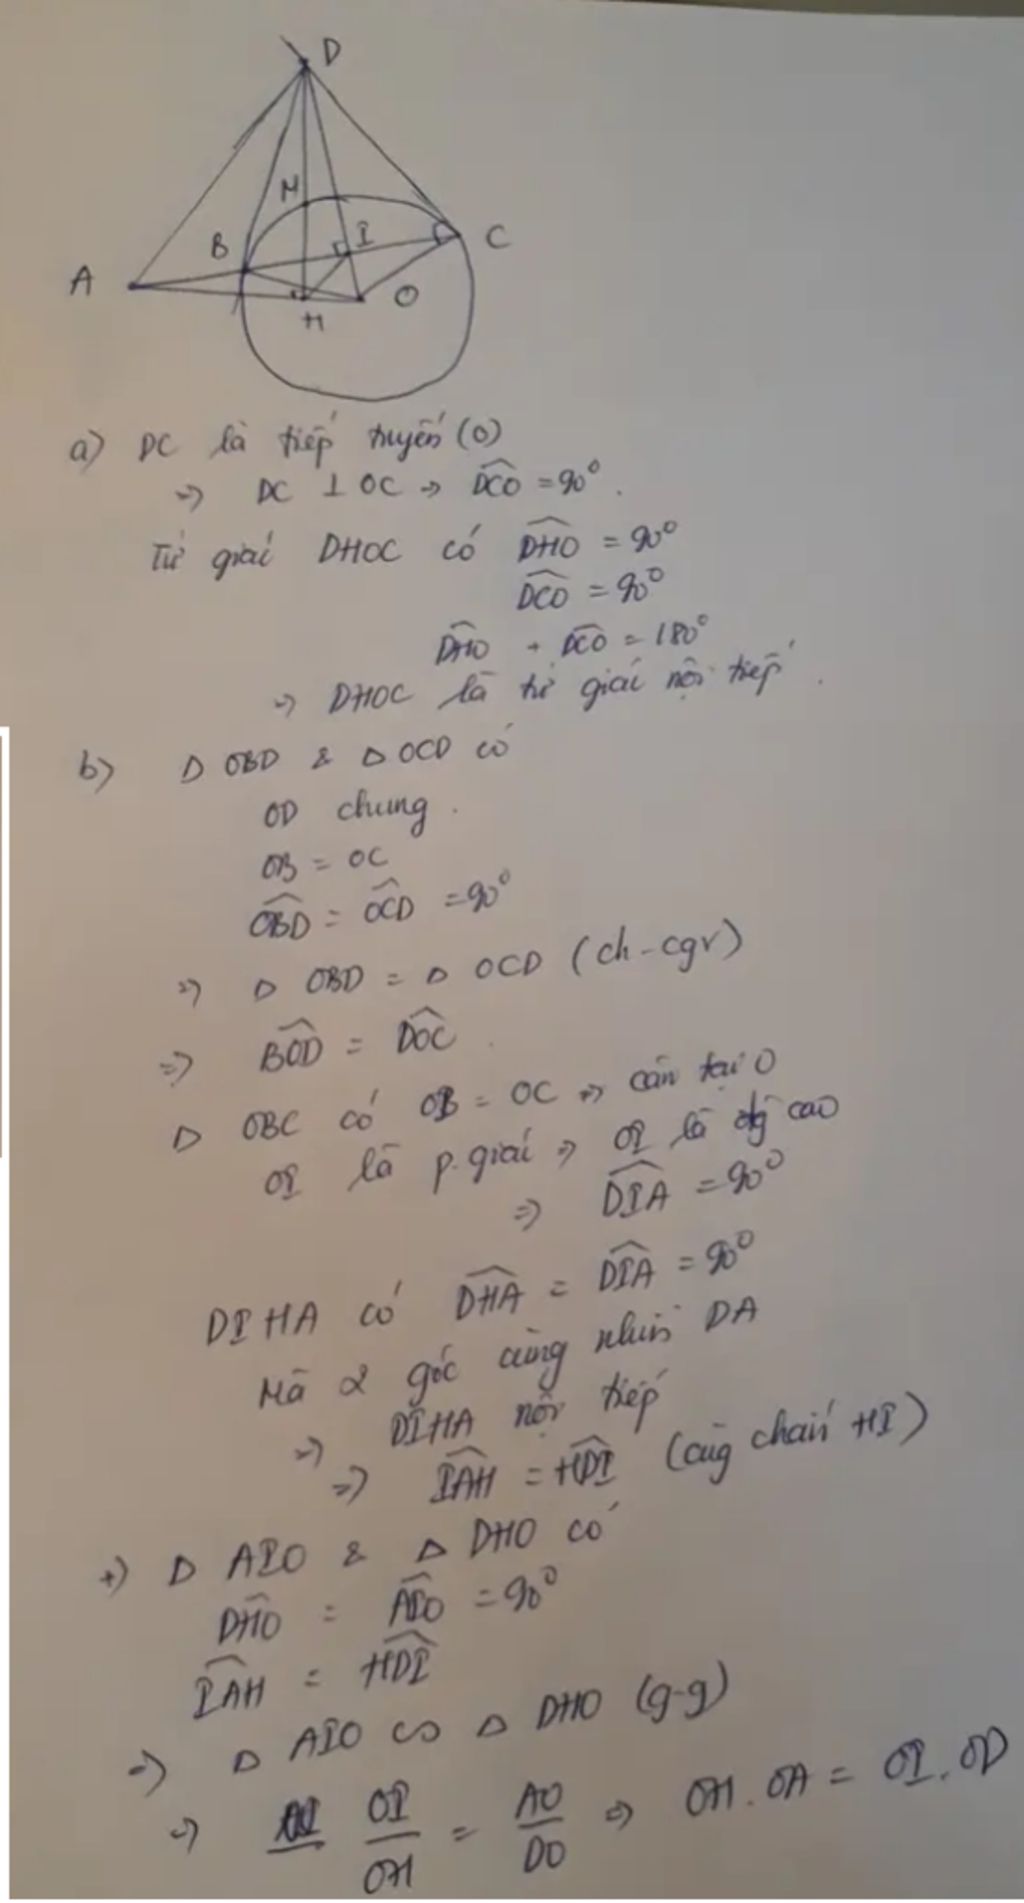 D
M
B
I
C
A
O
H
a) DC là tiếp tuyến (O)
=> DC ⊥ OC => DCO = 90°.
Tứ giác DHOC có DHO = 90°
DCO = 90°
DHO + DCO = 180°
=> DHOC là tứ giác nội tiếp.
b) Δ OBD & Δ OCD có
OD chung.
OB = OC
OBD = OCD = 90°
=> Δ OBD = Δ OCD (ch-cgv)
=> BOD = DOC.
Δ OBC có OB = OC => cân tại O
OI là p.giác => OI là đg cao
=> DIA = 90°
DIHA có DHA = DIA = 90°
Mà 2 góc cùng nhìn DA
=> DIHA nội tiếp
=> IAH = HDI (cùg chắn HI)
+) Δ AIO & Δ DHO có
DHO = AIO = 90°
IAH = HDI
=> Δ AIO ∽ Δ DHO (g-g)
=> OI/OH = AO/DO => OH.OA = OI.OD